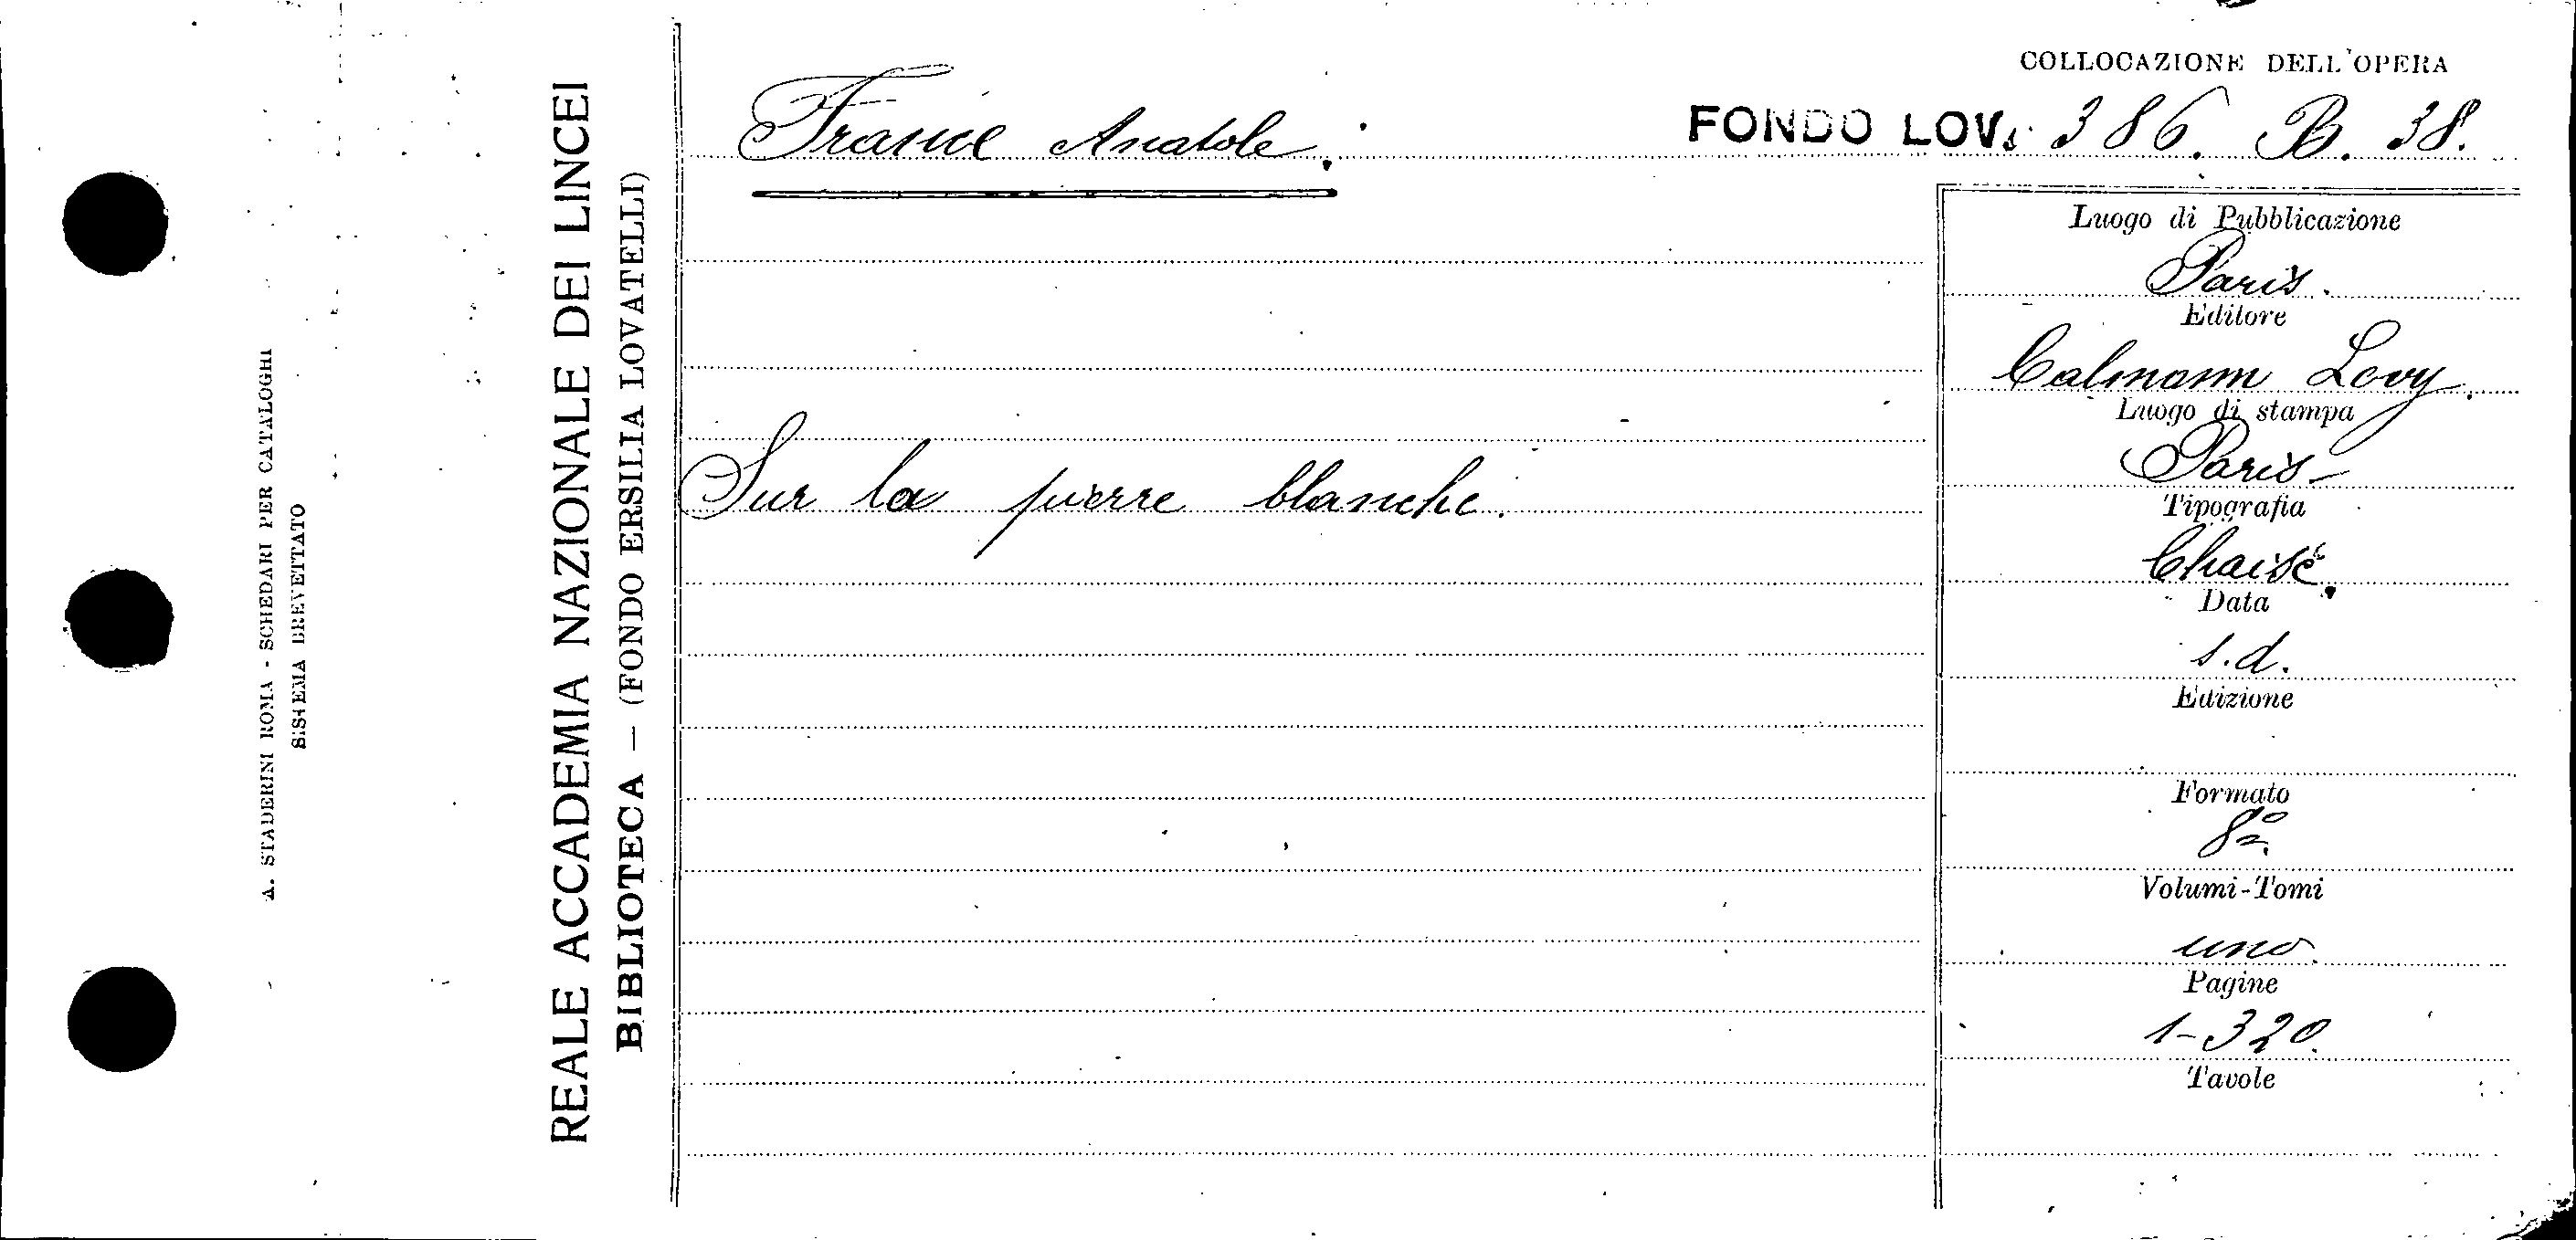 COLLOCAZIONE DELL'OPERA
France Anatole.
FONDO LOV. 386. B. 38.
Sur la pierre blanche.
Luogo di Pubblicazione
Paris.
Editore
Calmann Levy.
Luogo di stampa
Paris
Tipografia
Chaise.
Data
s.d.
Edizione
Formato
8º
Volumi-Tomi
uno
Pagine
1-320.
Tavole
REALE ACCADEMIA NAZIONALE DEI LINCEI
BIBLIOTECA — (FONDO ERSILIA LOVATELLI)
A. STADERINI ROMA - SCHEDARI PER CATALOGHI
SISTEMA BREVETTATO